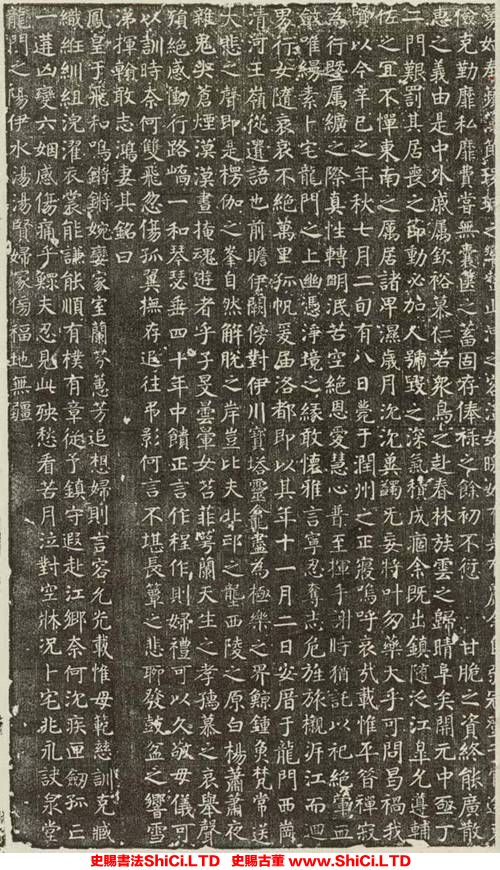 儉克勤靡私靡費嘗無囊篋之蓄固存俸祿之餘初不愆 甘脆之資終能廣散
惠之義由是中外戚屬欽裕慕仁若眾鳥之赴春林族雲之歸晴阜矣開元中亟丁
二門艱罰其居喪之節動必加人號毀之深氣積成痼余既出鎮隨泛江皐允遵輔
佐之宜不憚東南之屬居諸卑濕歲月沈沈冀蠲无妄將叶勿藥天乎可問曷禍我
賢以今辛巳之年秋七月二旬有八日薨于潤州之正寢嗚呼哀哉載惟平昔禪寂
為行暨屬纊之際真性轉明泯苦空絕恩愛慧心普至揮手謝時猶託以祀絕葷血
斂唯縞素卜宅龍門之上幽憑淨境之緣敢懷雅言寧忍奪志危旌旅櫬泝江而迴
男行女隨哀哀不絕萬里孤帆爰屆洛都即以其年十一月二日安厝于龍門西崗
清河王嶺從遷語也前瞻伊闕傍對伊川寶塔靈龕盡為極樂之界鯨鍾魚梵常送
大悲之聲即是楞伽之峯自然解脫之岸豈比夫北邙之壟西陵之原白楊蕭蕭夜
雜鬼哭蒼煙漠漠晝掩魂遊者乎子旻雲暈女苕菲萼蘭天生之孝孺慕之哀舉聲
殞絕感慟行路嗚一和琴瑟垂四十年中饋正言作程作則婦禮可以久敬母儀可
以訓時奈何雙飛忽傷孤翼撫存追往弔影何言不堪長簟之悲聊發鼓盆之響雪
涕揮翰敢志鴻妻其銘曰
鳳皇于飛和鳴鏘鏘婉孌家室蘭芬蕙芳追想婦則言容允光載惟母範慈訓克臧
織紝紃組浣濯衣裳能謙能順有樸有章從予鎮守遐赴江鄉奈何沈疾匣劒孤亡
一遘凶變六姻感傷痛乎鰥夫忍見此殃愁看苦月泣對空牀況卜宅兆永訣泉堂
龍門之陽伊水湯湯賢婦冢傍福地無疆
史賜書法ShiCi.LTD 史賜古董 www.ShiCi.LTD